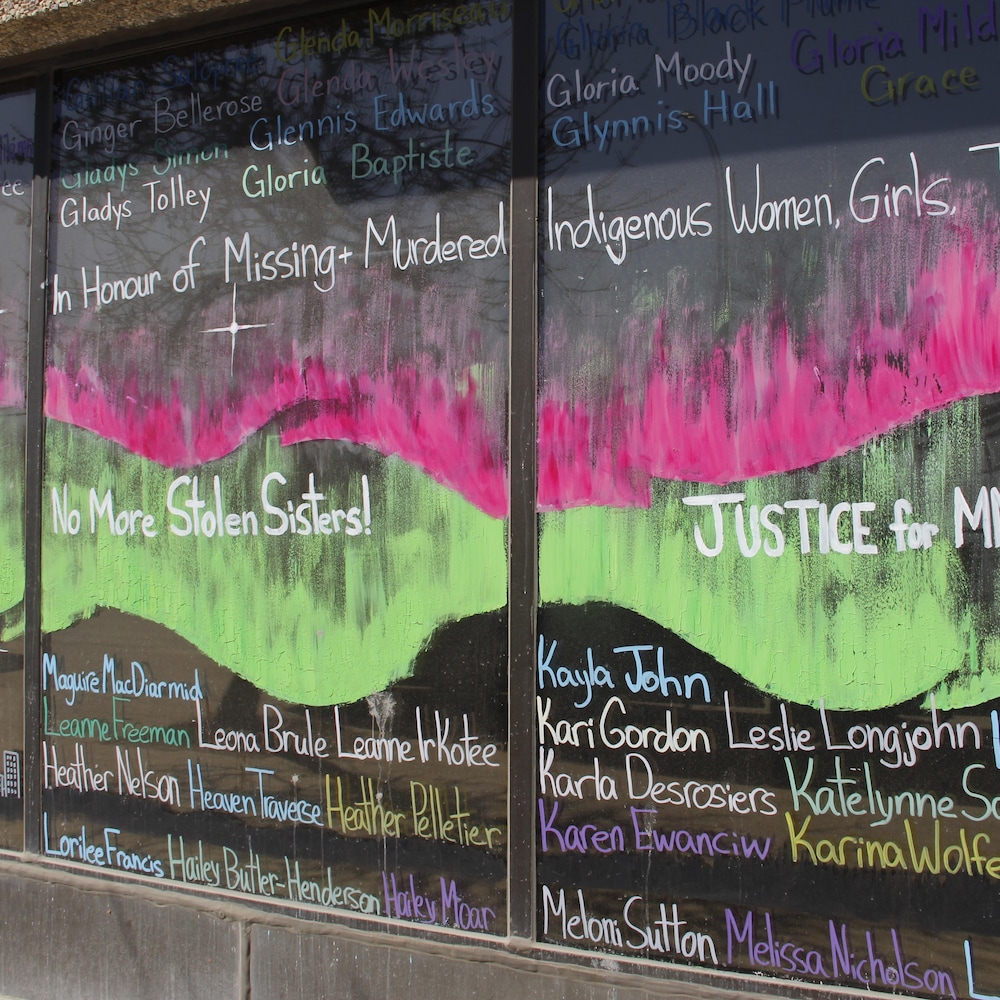 Glenda Morrisseau
Glenda Wesley
Ginger Bellerose
Glennis Edwards
Gladys Simon
Gloria Baptiste
Gladys Tolley
In Honour of Missing + Murdered
No More Stolen Sisters!
Maguire MacDiarmid
Leanne Freeman Leona Brule Leanne IrKotee
Heather Nelson Heaven Traverse Heather Pelletier
Lorilee Francis Hailey Butler-Henderson Hailey Moar
Gloria Black Plume
Gloria Moody
Gloria Mild
Glynnis Hall
Grace
Indigenous Women, Girls,
JUSTICE for
Kayla John
Kari Gordon Leslie Longjohn
Karla Desrosiers Katelynne
Karen Ewanciw Karina Wolfe
Meloni Sutton Melissa Nicholson